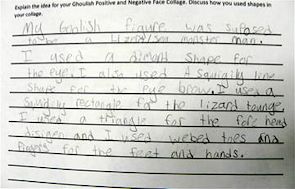 Explain the idea for your Ghoulish Positive and Negative Face Collage. Discuss how you used shapes in
your collage.
My Ghoulish Figure was suposed
to be a Lizard/sea monster man.
I used a dimond shape for
the eye. I also used a squigily line
shape for the eye brow. I used a
squigily rectangle for the lizard tounge.
I used a triangle for the fore head
disigen and I used webed toes and
fingers for the feet and hands.